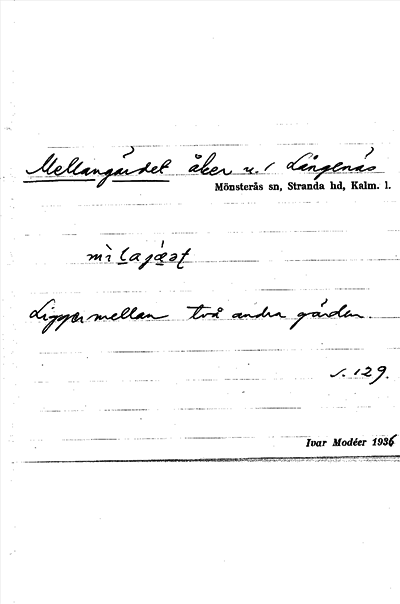 Mellangärdet åker u. Långenäs
Mönsterås sn, Stranda hd, Kalm. l.
Ligger mellan två andra gärden.
s. 129.
Ivar Modéer 1936